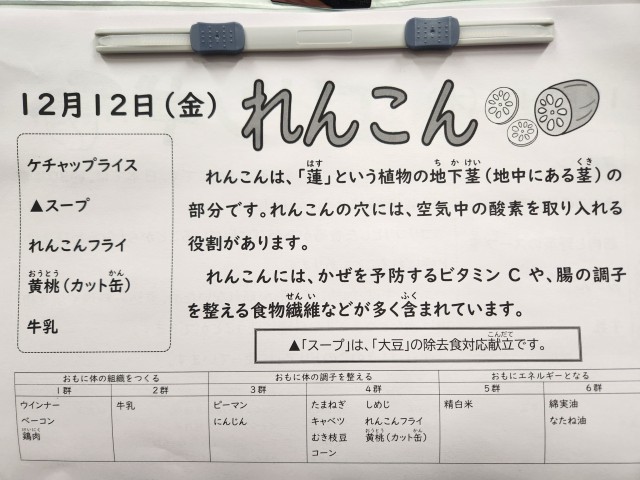 12月12日(金)
れんこん
ケチャップライス
▲スープ
れんこんフライ
おうとう かん
黄桃(カット缶)
牛乳
はす ち か けい くき
れんこんは、「蓮」という植物の地下茎(地中にある茎)の
部分です。れんこんの穴には、空気中の酸素を取り入れる
役割があります。
れんこんには、かぜを予防するビタミンCや、腸の調子
せん い ふく
を整える食物繊維などが多く含まれています。
こんだて
▲「スープ」は、「大豆」の除去食対応献立です。
おもに体の組織をつくる おもに体の調子を整える おもにエネルギーとなる
1群 2群 3群 4群 5群 6群
ウインナー 牛乳 ピーマン たまねぎ しめじ 精白米 綿実油
ベーコン にんじん キャベツ れんこんフライ なたね油
けいにく おうとう かん
鶏肉 むき枝豆 黄桃(カット缶)
コーン